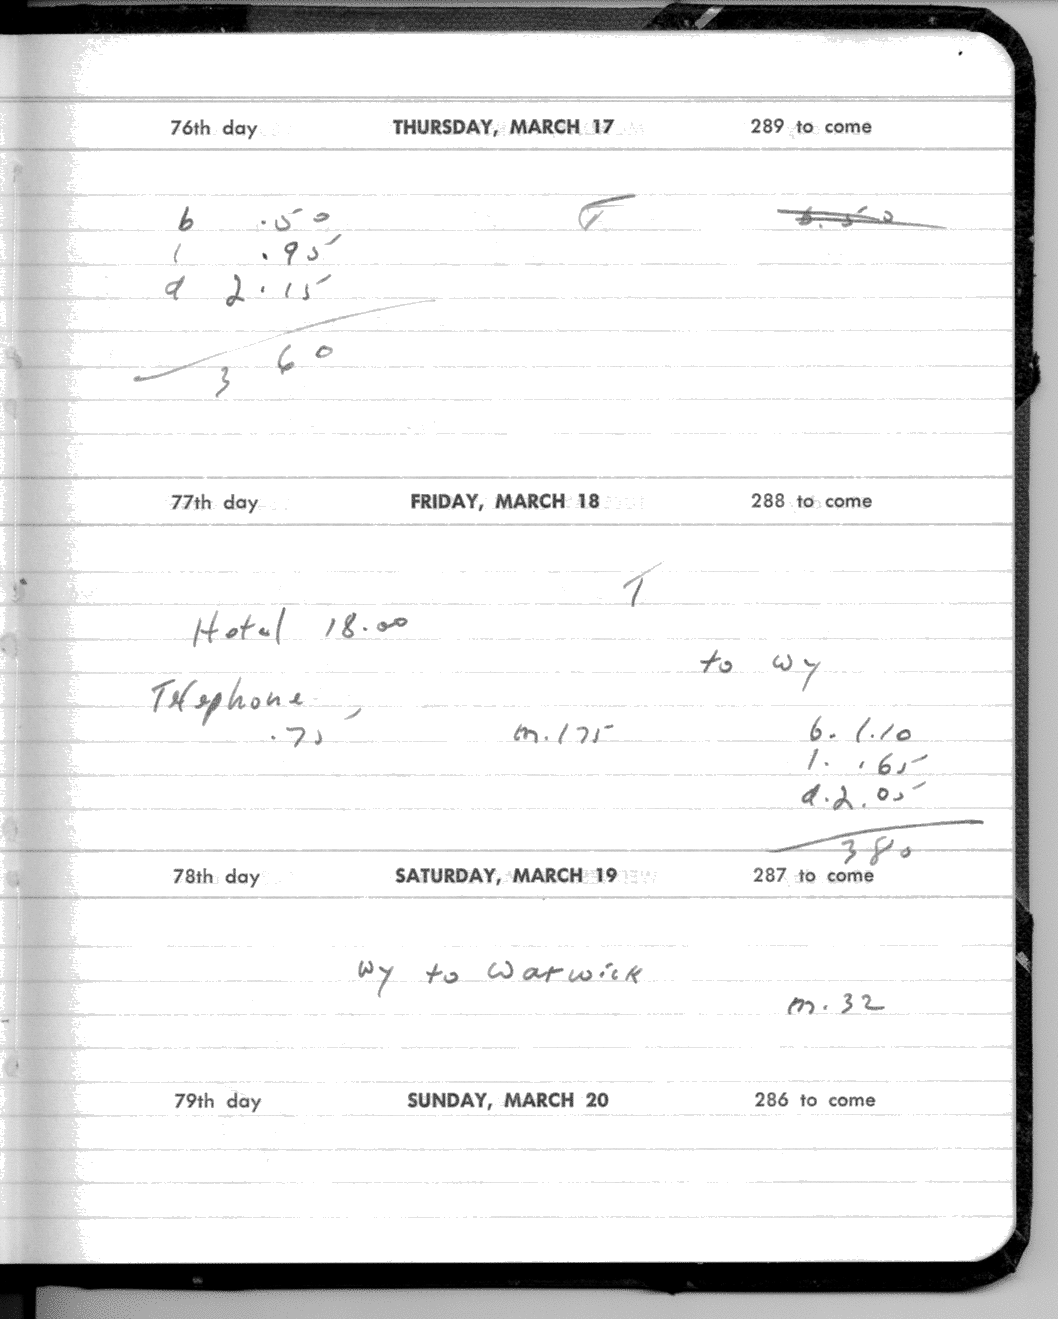 76th day THURSDAY, MARCH 17 289 to come
b .50 T 6.50
l .95
d 2.15
3 60
77th day FRIDAY, MARCH 18 288 to come
T
Hotel 18.00
to wy
Telephone
.75 m.175 b. 1.10
l. .65
d. 2.05
3 80
78th day SATURDAY, MARCH 19 287 to come
wy to Warwick
m. 32
79th day SUNDAY, MARCH 20 286 to come